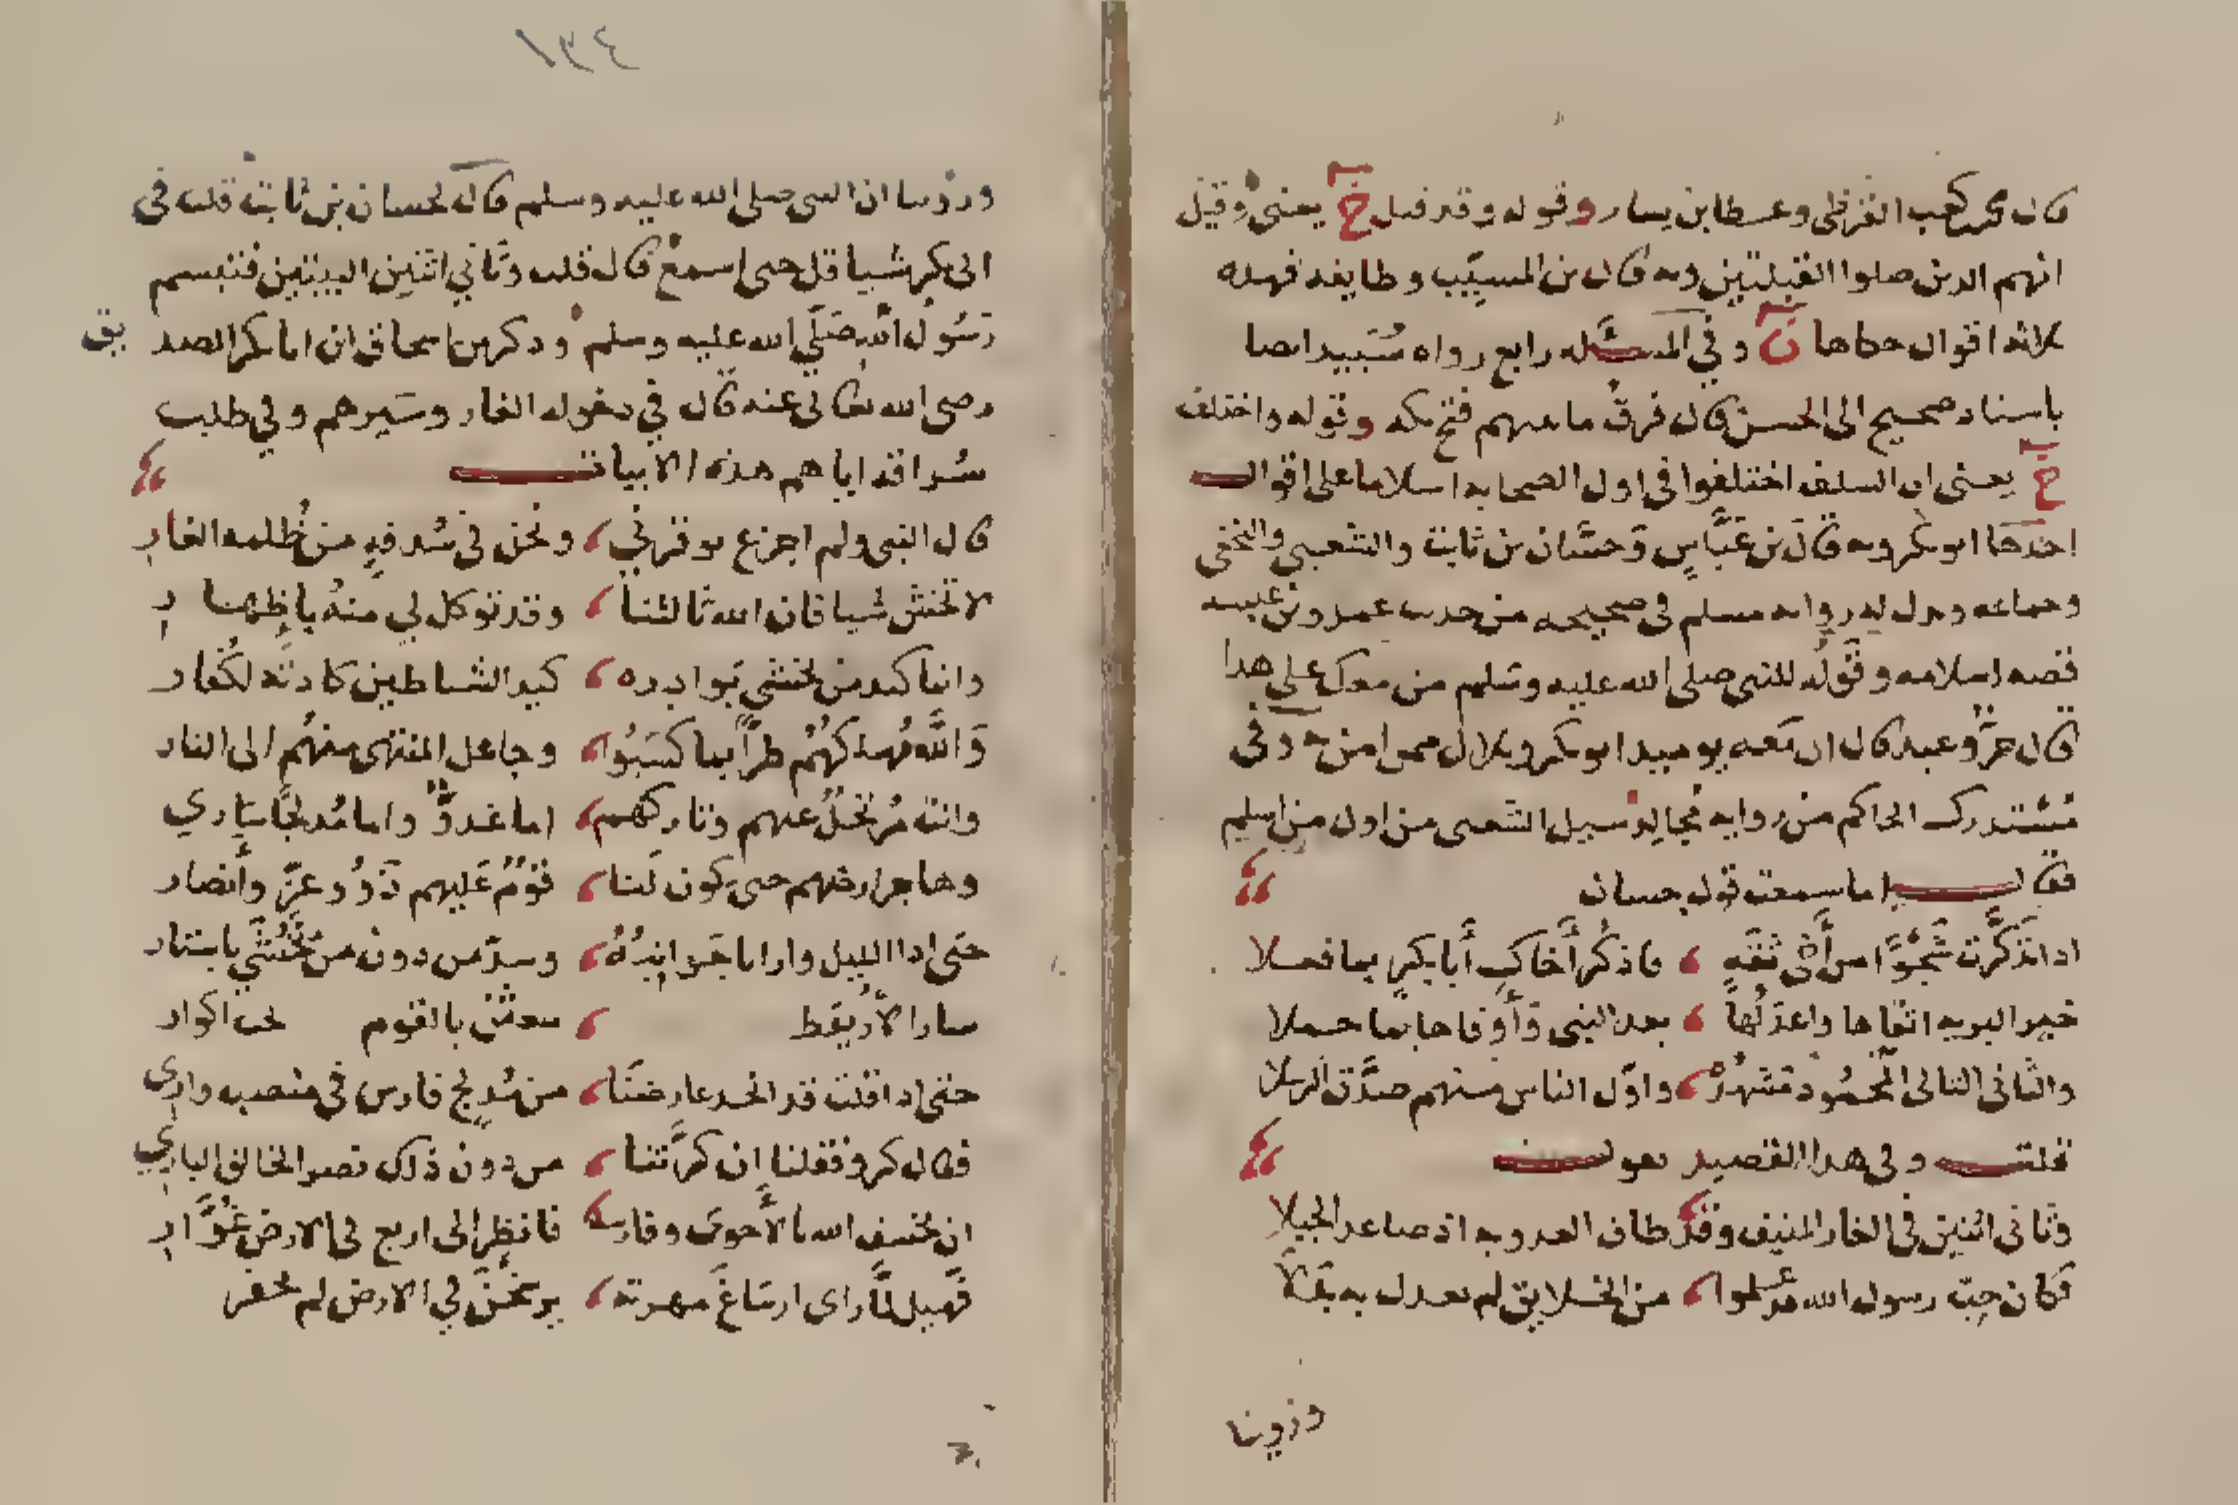 قال محمد بن كعب القرظي وعطا بن يسار وقوله وقد قيل خ يعني وقيل
انهم الدين صلوا القبلتين وبه قال بن المسيّب وطايفه فهده
ثلاثه اقوال حكاها ن وفي المسئله رابع رواه سُنيد ايضا
باسناد صحيح الى الحسن قال فرق ما بينهم فتح مكه وقوله واختلف
خ يعني ان السلف اختلفوا في اول الصحابه اسلاما على اقوال
احدها ابو بكر وبه قال بن عبّاس وحسّان بن ثابت والشعبي والنخعي
وجماعه ويدل له رواىه مسلم في صحيحه من حديث عمرو بن عبسه
قصه اسلامه وقوله للنبي صلى الله عليه وسلم من معك على هدا
قال حرٌّ وعبد قال ان معه يوميد ابو بكر وبلال ممن امن به وفي
مُسْتدرك الحاكم من روايه مجالد سيل الشعبي من اول من اسلم
فقال اما سمعت قول حسان
ادا تذكّرت شَجْوًا من أخي ثقَه ، فاذكُر أخاك أبا بكرٍ بما فعلا
خير البريه اتقاها واعدلُها ، بعد النبي وأوفاها بما حملا
والثاني التالي المحمُود مَشهدُهُ ، واوّل الناس منهم صدّق الرسلا
قلت وفي هدا القصيد يقول
وثاني اثنين في الغار المنيف وقد طاف العدو به اذ صاعد الجبلا
وكان حِبّ رسول الله قد علموا ، من الخلايق لم يعدل به بدلا
وروينا
٤٣١
وروينا ان النبي صلى الله عليه وسلم قال لحسان بن ثابت قلت في
ابي بكر شيا قل حتى اسمع قال قلت وثاني اثنين البيتين فتبسم
رسُول الله صَلّى الله عليه وسلم ودكر بن اسحاق ان ابا بكر الصديق
رضي الله تعالى عنه قال في دخوله الغار وسَيرهم وفي طلب
سُراقه اياهم هذه الابيات
قال النبي ولم اجزع يوقرني ، ونحن في سُدفهٍ من ظُلمه الغار
لا تخش شيا فان الله ثالثنا ، وقد توكل لي منهُ باِظهار
وانما كيد من نخشى بَوادره ، كيد الشياطين كادته لكُفار
وَاللّه مُهلكهُمْ طرّاً بما كسَبُوا ، وجاعل المنتهى منهُم الى النار
وانت مُرتحلٌ عنهم وتاركهم ، اما غدوٌّ واما مُدلجًا ساري
وهاجر ارضهم حتى يكون لَنا ، قومٌ عَليهم ذَوُو عزّ وأنصار
حتى ادا الليل وارانا جَوانبُهُ ، وسدّ من دون من نَخْشَى باستار
سارا الأُرَيْقط ، بالقوم تحت اكوار
حتى ادا قلت قد انجد عارضنَا ، من مُدلج فارس في منصبه واري
فقال كرو فقلنا إن كرّتنا ، من دون ذلك نصر الخالق الباري
ان يخسف الله بالأحوى وفارسه ، فانظر الى اربع في الارض غُوَّار
فَهيل لمّا راى ارساغ مهرته ، في الارض لم تحفر